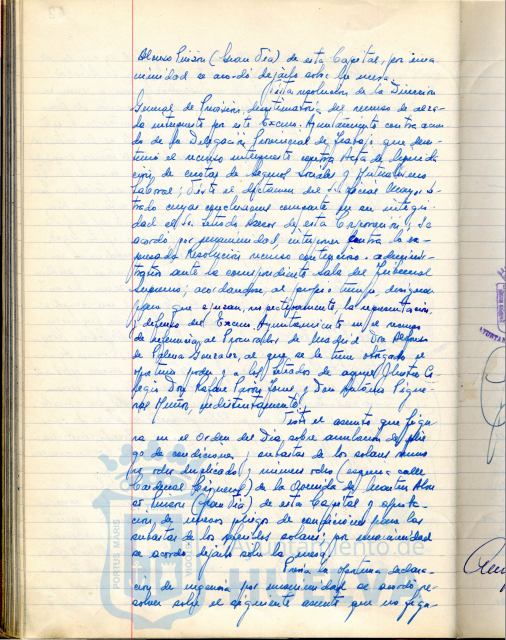 Alonso Pinzón (Gran Vía) de esta Capital, por una-
nimidad se acordó dejarlo sobre la mesa.
Vista resolución de la Dirección
General de Previsión, desestimatoria del recurso de alza-
da interpuesto por este Excmo. Ayuntamiento contra acuer-
do de la Delegación Provincial de Trabajo que deses-
timó el recurso interpuesto contra Acta de liquida-
ción de cuotas de Seguros Sociales y Mutualismo
Laboral; Visto el dictamen del Sr. Oficial Mayor Le-
trado cuyas conclusiones comparte en su integri-
dad el Sr. Letrado Asesor de esta Corporación, se
acordó por unanimidad, interponer contra la ex-
presada Resolución recurso contencioso-administra-
tivo ante la correspondiente Sala del Tribunal
Supremo; acordándose, al propio tiempo, designar
para que ejerzan, respectivamente, la representación
y defensa del Excmo. Ayuntamiento en el recurso
de referencia, al Procurador de Madrid Don Alfonso
de Palma González, al que se le tiene otorgado el
oportuno poder y a los Letrados de aquel Ilustre Co-
legio Don Rafael Pérez y Don Antonio
Muñoz, indistintamente.
Visto el asunto que figu-
ra en el Orden del Día, sobre anulación del plie-
go de condiciones, subastas de los solares números
duplicado, y número ocho (esquina calle
Cardenal Cisneros) de la Avenida de Martín Alon-
so Pinzón (Gran Vía) de esta Capital y aproba-
ción de nuevos pliegos de condiciones para las
subastas de los referidos solares; por unanimidad
se acordó dejarlo sobre la mesa.
Previa la oportuna declara-
ción de urgencia por unanimidad se acordó re-
solver sobre el siguiente asunto que no figu-
Ayuntamiento de
HUELVA
PORTUS MARIS